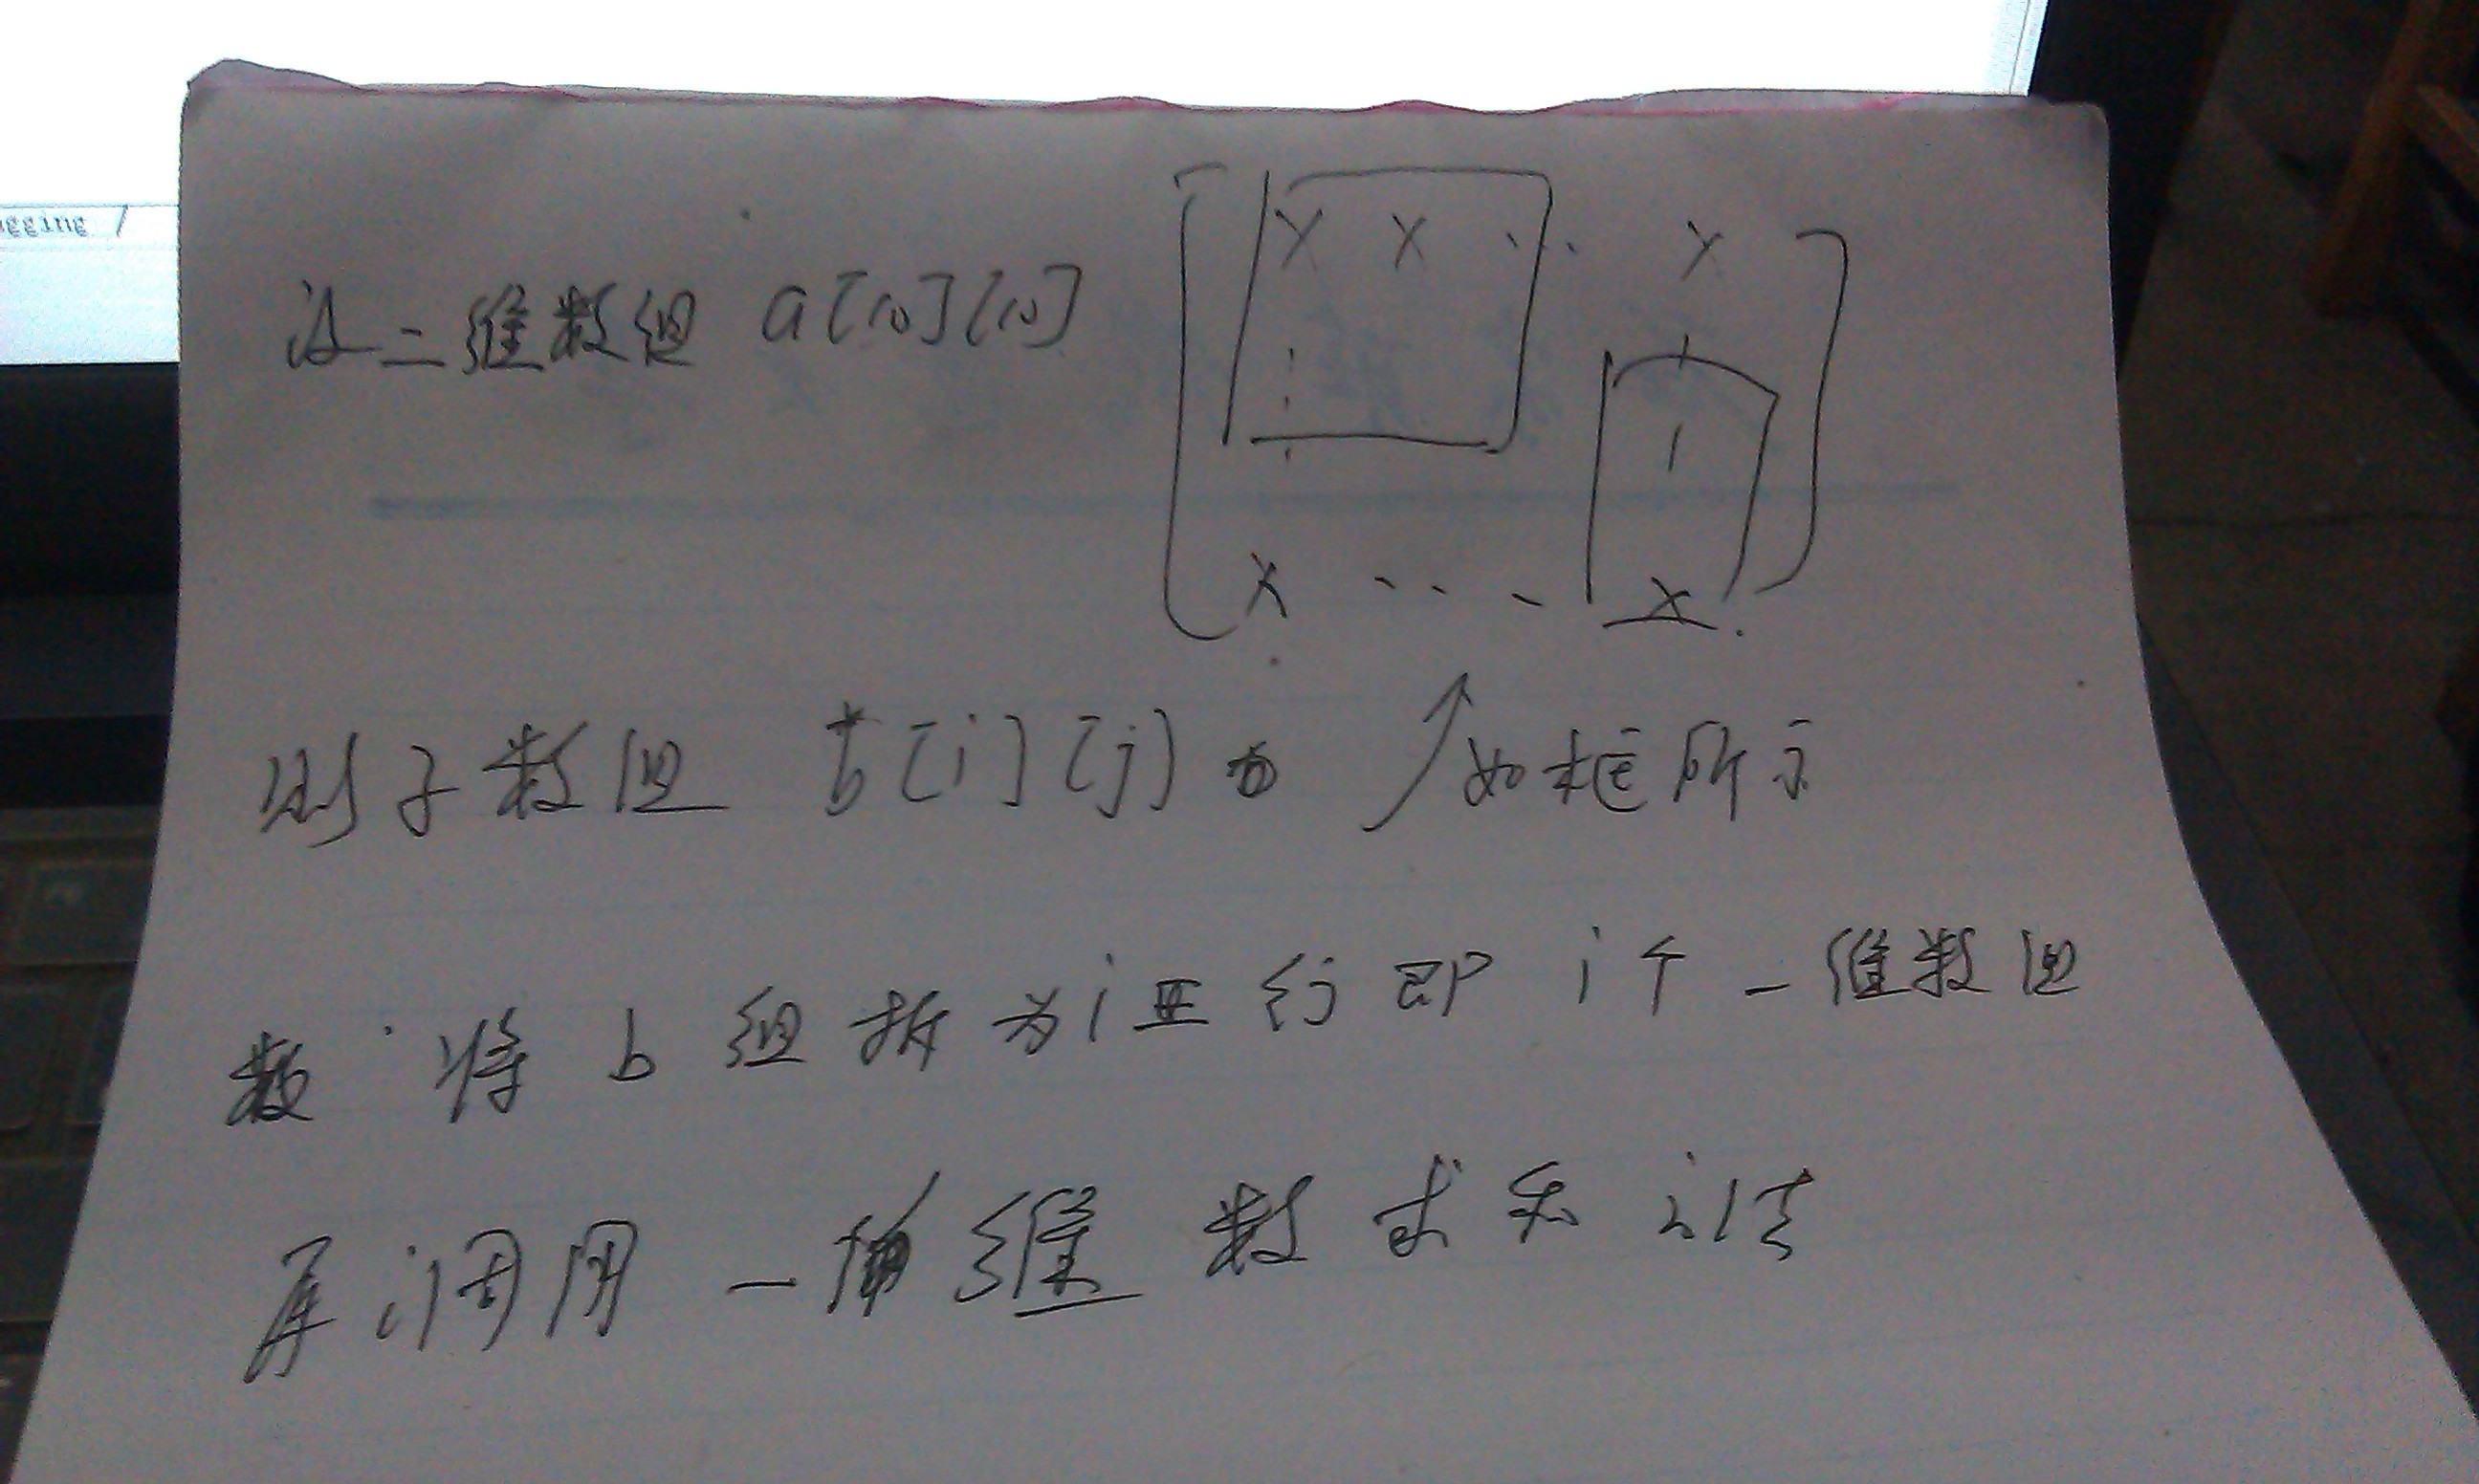 gging /
设二维数组 a[10][10]
X X ... X
X ... X
则子数组 b[i][j] 为 如框所示
数 将 b 组拆为 i 行即 i 个一维数组
再调用一维数求和法